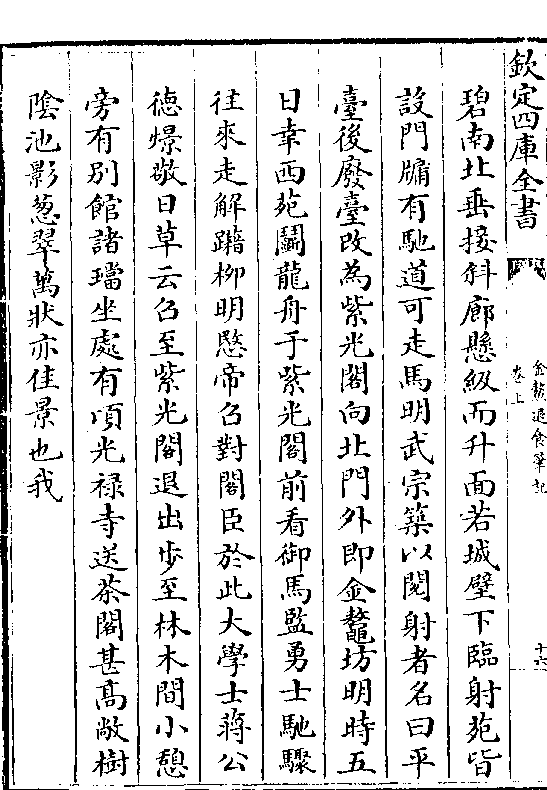 欽定四庫全書
金鰲退食筆記
卷上
十六
碧南北垂接斜廊懸級而升面若城壁下臨射苑皆
設門牖有馳道可走馬明武宗築以閱射者名曰平
臺後廢臺改為紫光閣向北門外即金鰲坊明時五
日幸西苑鬬龍舟于紫光閣前看御馬監勇士馳驟
往來走解躤柳明愍帝召對閣臣於此大學士蔣公
德璟敬日草云召至紫光閣退出步至林木間小憩
旁有別館諸璫坐處有項光禄寺送茶閣甚髙敞樹
陰池影葱翠萬狀亦佳景也我